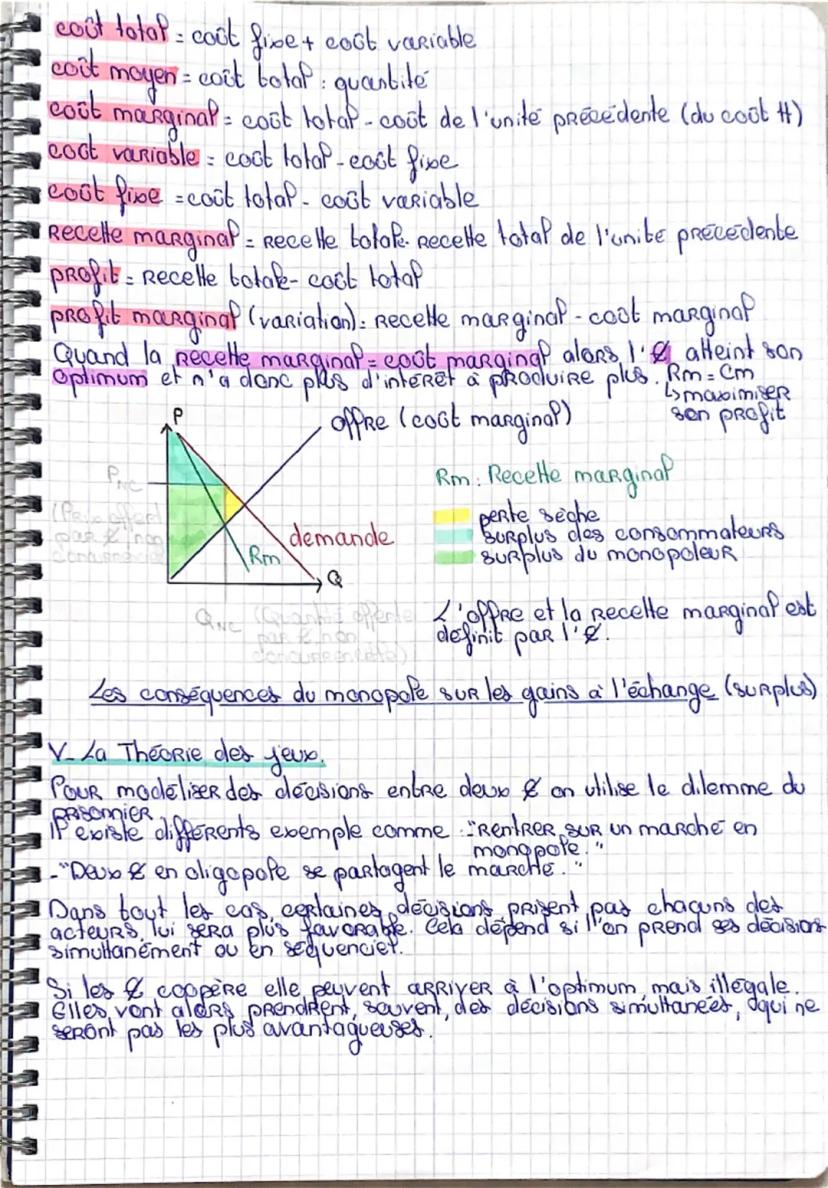 coût total = coût fixe + coût variable
coût moyen = coût total : quantité
coût marginal = coût total - coût de l'unité précédente (du coût tt)
coût variable = coût total - coût fixe
coût fixe = coût total - coût variable
Recette marginal = Recette totale - Recette total de l'unité précédente
profit = Recette totale - coût total
profit marginal (variation) = Recette marginal - coût marginal
Quand la recette marginal = coût marginal alors l'E atteint son
optimum et n'a donc plus d'intérêt à produire plus. Rm = Cm
↳ maximiser
son profit
P
offre (coût marginal)
PNC
(Prix offert
par E non
concurrentiel)
Rm : Recette marginal
perte sèche
surplus des consommateurs
surplus du monopoleur
demande
Rm
Q
QNC (Quantité offerte
par E non
concurrentiele)
L'offre et la recette marginal est
définit par l'E.
Les conséquences du monopole sur les gains à l'échange (surplus)
V- La Théorie des jeux.
Pour modéliser des décisions entre deux E on utilise le dilemme du
prisonnier
Il existe différents exemple comme : -"Rentrer sur un marché en
monopole."
-"Deux E en oligopole se partagent le marché."
Dans tout les cas, certaines décisions prisent pas chacuns des
acteurs, lui sera plus favorable. Cela dépend si l'on prend ses décisions
simultanément ou en séquenciel.
Si les E coopère elle peuvent arriver à l'optimum, mais illégale.
Elles vont alors prendrent, souvent, des décisions simultanées, qui ne
seront pas les plus avantagueuses.